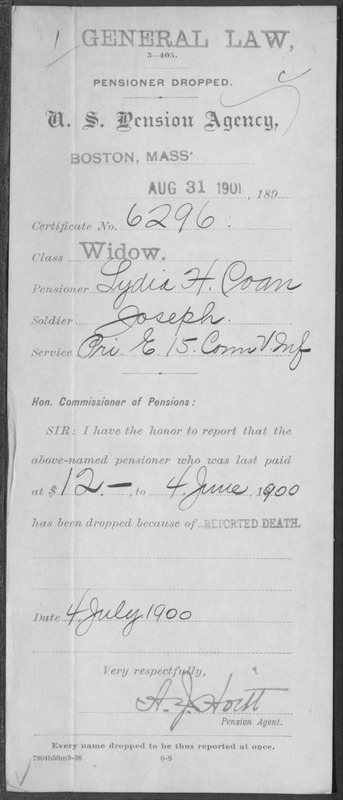 1 GENERAL LAW,
3—405.
PENSIONER DROPPED.
U. S. Pension Agency,
BOSTON, MASS.
AUG 31 1901, 189
Certificate No. 6296.
Class Widow.
Pensioner Lydia H. Coan
Soldier Joseph.
Service Pri. E. 15. Conn V. Inf
Hon. Commissioner of Pensions:
SIR: I have the honor to report that the
above-named pensioner who was last paid
at $12.—, to 4 June, 1900
has been dropped because of REPORTED DEATH.
Date 4 July 1900
Very respectfully,
A. J. Hoitt
Pension Agent.
Every name dropped to be thus reported at once.
7904b50m9-98 6-9